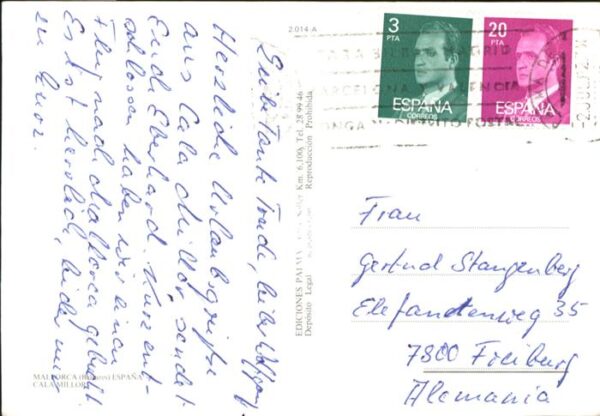 2.014 A
Liebe Tante Trude, lieber Wolfgang
Herzliche Urlaubsgrüße
aus Cala Millor sendet
Euch Eberhard. Kurzent-
schlossen haben wir einen
Flug nach Mallorca gebucht
Es ist herrlich, leider nur
zu kurz.
MALLORCA ESPAÑA
CALA MILLOR
EDICIONES PALMA Km. 6,100 Tel. 28 99 46
Depósito Legal Reproducción Prohibida
3
PTA
ESPAÑA
CORREOS
20
PTA
ESPAÑA
CORREOS
MADRID
BARCELONA VALENCIA
PONGA DISTRITO POSTAL
Frau
Gertrud Stangenberg
Elefantenweg 35
7800 Freiburg
Alemania